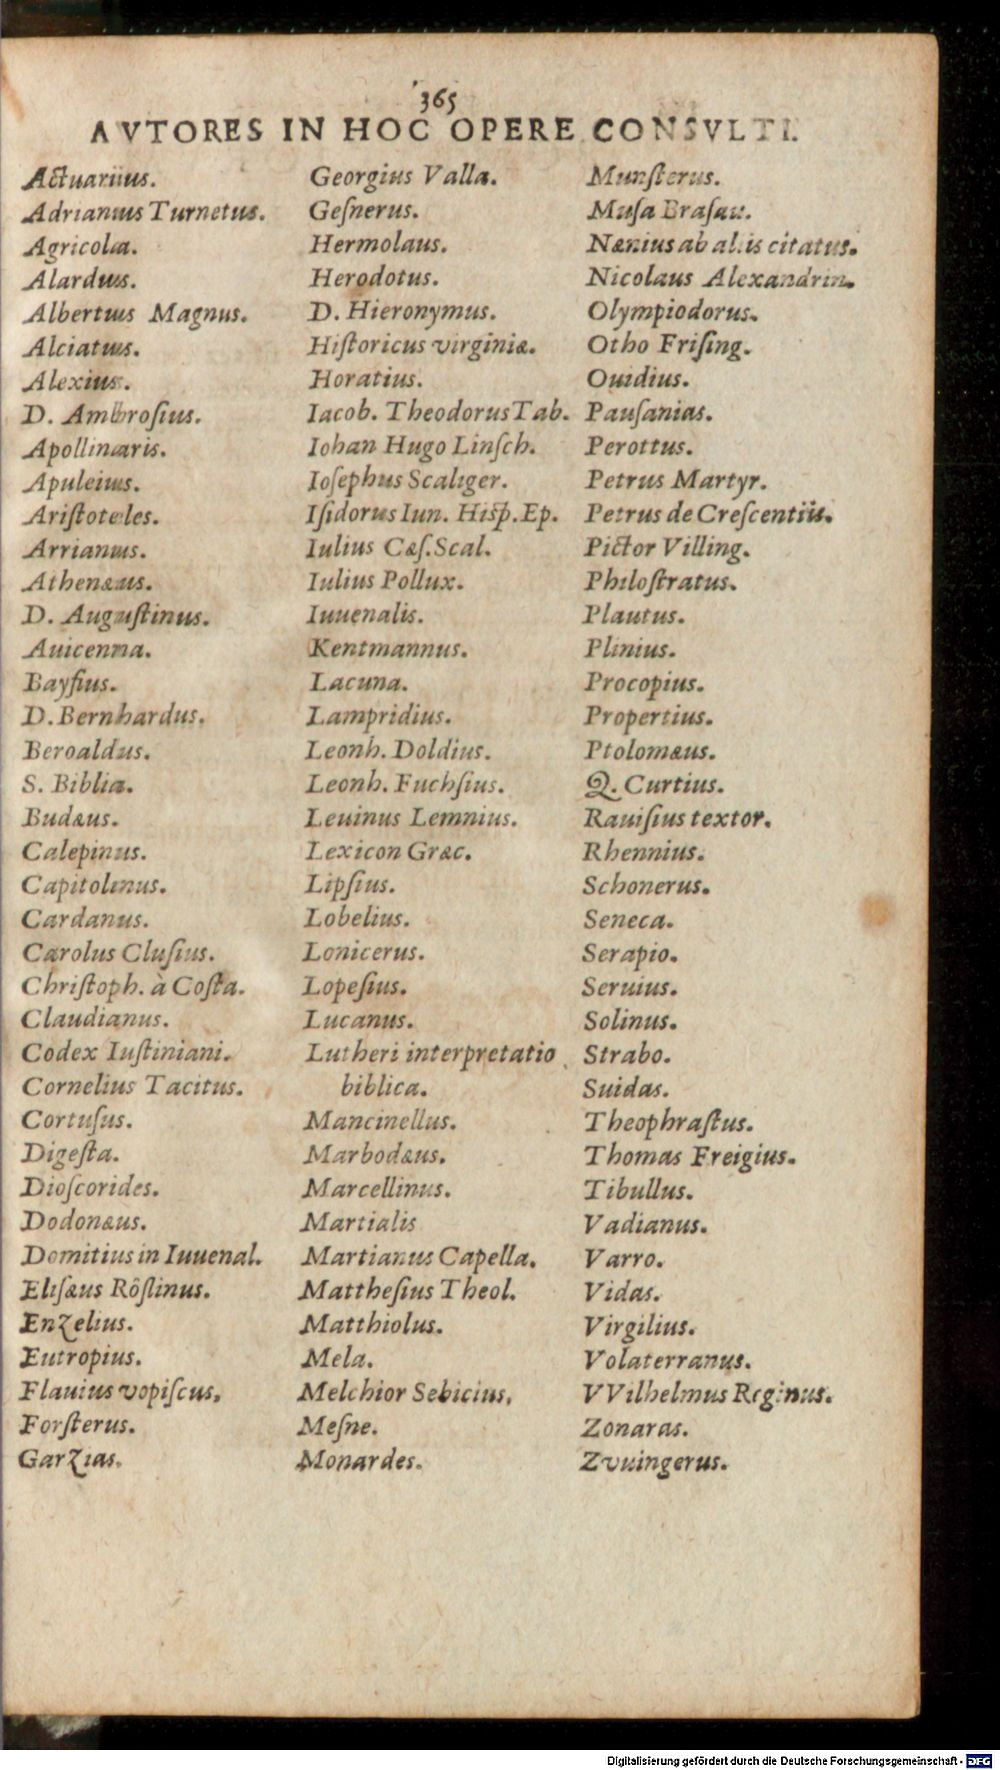 365
AVTORES IN HOC OPERE CONSVLTI.
Actuarius.
Adrianus Turnetus.
Agricola.
Alardus.
Albertus Magnus.
Alciatus.
Alexius.
D. Ambroſius.
Apollinaris.
Apuleius.
Ariſtoteles.
Arrianus.
Athenæus.
D. Auguſtinus.
Auicenna.
Bayfius.
D. Bernhardus.
Beroaldus.
S. Biblia.
Budæus.
Calepinus.
Capitolinus.
Cardanus.
Carolus Cluſius.
Chriſtoph. à Coſta.
Claudianus.
Codex Iuſtiniani.
Cornelius Tacitus.
Cortuſus.
Digeſta.
Dioſcorides.
Dodonæus.
Domitius in Iuuenal.
Eliſæus Röſlinus.
Enzelius.
Eutropius.
Flauius vopiſcus,
Forſterus.
Garzias.
Georgius Valla.
Geſnerus.
Hermolaus.
Herodotus.
D. Hieronymus.
Hiſtoricus virginiæ.
Horatius.
Iacob. Theodorus Tab.
Iohan Hugo Linſch.
Ioſephus Scaliger.
Iſidorus Iun. Hiſp. Ep.
Iulius Cæſ. Scal.
Iulius Pollux.
Iuuenalis.
Kentmannus.
Lacuna.
Lampridius.
Leonh. Doldius.
Leonh. Fuchſius.
Leuinus Lemnius.
Lexicon Græc.
Lipſius.
Lobelius.
Lonicerus.
Lopeſius.
Lucanus.
Lutheri interpretatio
biblica.
Mancinellus.
Marbodæus.
Marcellinus.
Martialis
Martianus Capella.
Mattheſius Theol.
Matthiolus.
Mela.
Melchior Sebicius,
Meſne.
Monardes.
Munſterus.
Muſa Braſau.
Nænius ab aliis citatus.
Nicolaus Alexandrin.
Olympiodorus.
Otho Friſing.
Ouidius.
Pauſanias.
Perottus.
Petrus Martyr.
Petrus de Creſcentiis.
Pictor Villing.
Philoſtratus.
Plautus.
Plinius.
Procopius.
Propertius.
Ptolomæus.
Q. Curtius.
Rauiſius textor.
Rhennius.
Schonerus.
Seneca.
Serapio.
Seruius.
Solinus.
Strabo.
Suidas.
Theophraſtus.
Thomas Freigius.
Tibullus.
Vadianus.
Varro.
Vidas.
Virgilius.
Volaterranus.
VVilhelmus Reginus.
Zonaras.
Zvuingerus.
Digitalisierung gefördert durch die Deutsche Forschungsgemeinschaft - DFG